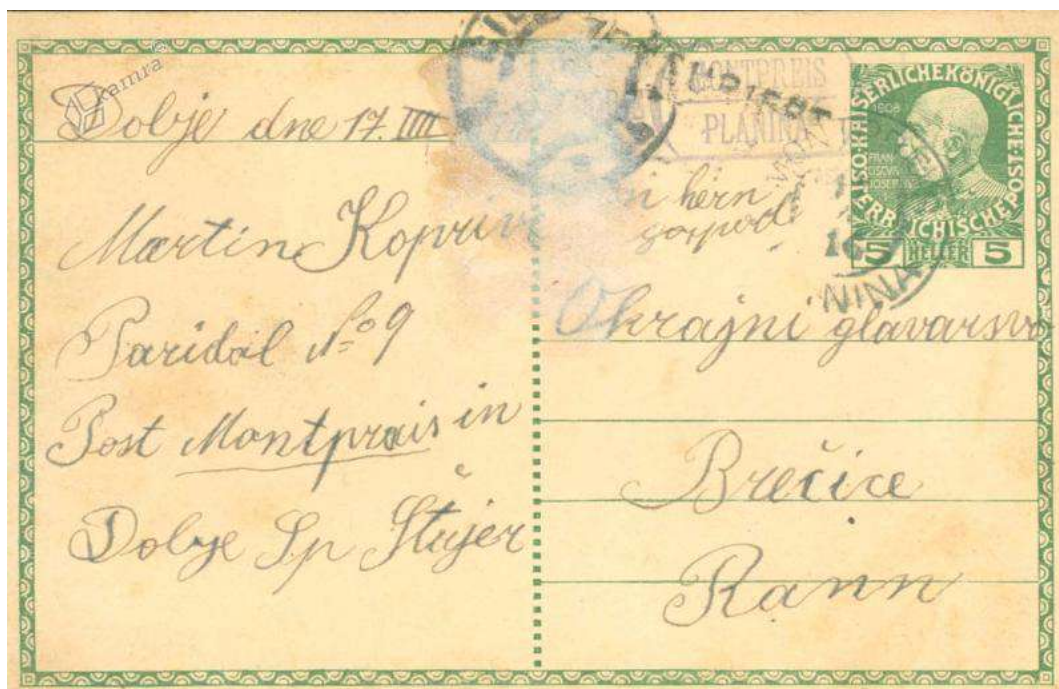 Kamra
Dobje dne 17. IIII
Martin Kopriv
Paridol No 9
Post Montprais in
Dobje Sp Štajer
MONTPREIS
PLANINA
hern
gospod
Okrajni glavarsvo
Brečice
Rann
KAISERLICHEKÖNIGLICHE
ÖSTERREICHISCHE POST
1908
FRAN
CISCVS
IOSEF
5 HELLER 5
16
NINA